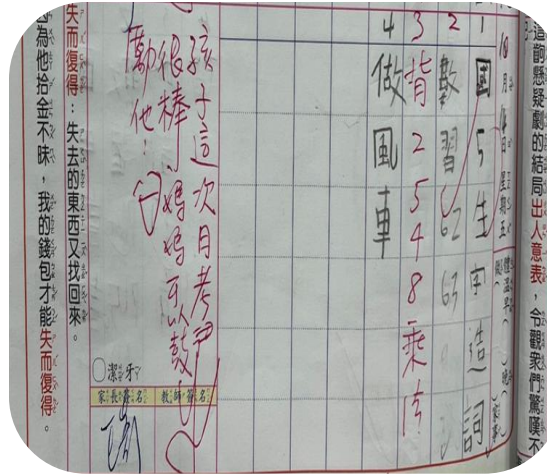 這齣懸疑劇的結局出人意表，令觀眾們驚嘆不
10月 日 星期五
1 國5生字造詞
2 數習62 63
3 背2 5 4 8乘法
4 做風車
孩子這次月考
很棒，媽媽可以鼓
勵他！
○潔牙
家長簽名
教師簽名
失而復得：失去的東西又找回來。
因為他拾金不昧，我的錢包才能失而復得。